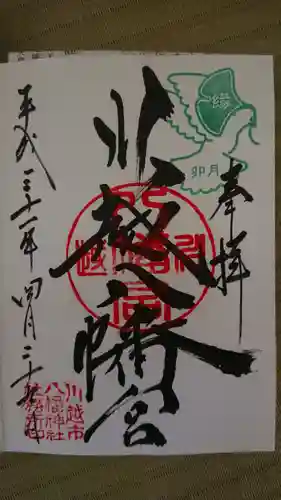 奉拝
縁
卯月
川越八幡宮
川越市
八幡神社
平成三十一年四月二十